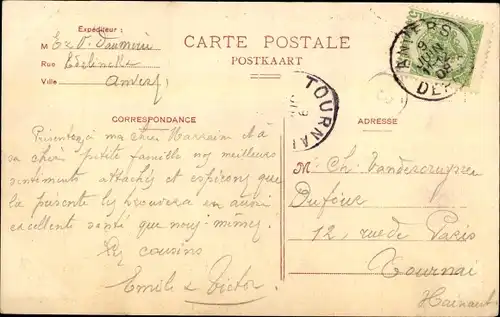 Expéditeur:
M
Rue Edelinck
Ville Anvers
CARTE POSTALE
POSTKAART
ANVERS
9
JUIN
DÉPART
TOURNAI
CORRESPONDANCE
ADRESSE
à ma chère et à
sa chère petite famille nos meilleurs
sentiments attachés et espérons que
la présente les trouvera en aussi
excellente santé que nous-mêmes.
Vos cousins
Emile & Victor
Mr Ch. Vandercruyssen
Dufour
12, rue de Paris
Tournai
Hainaut